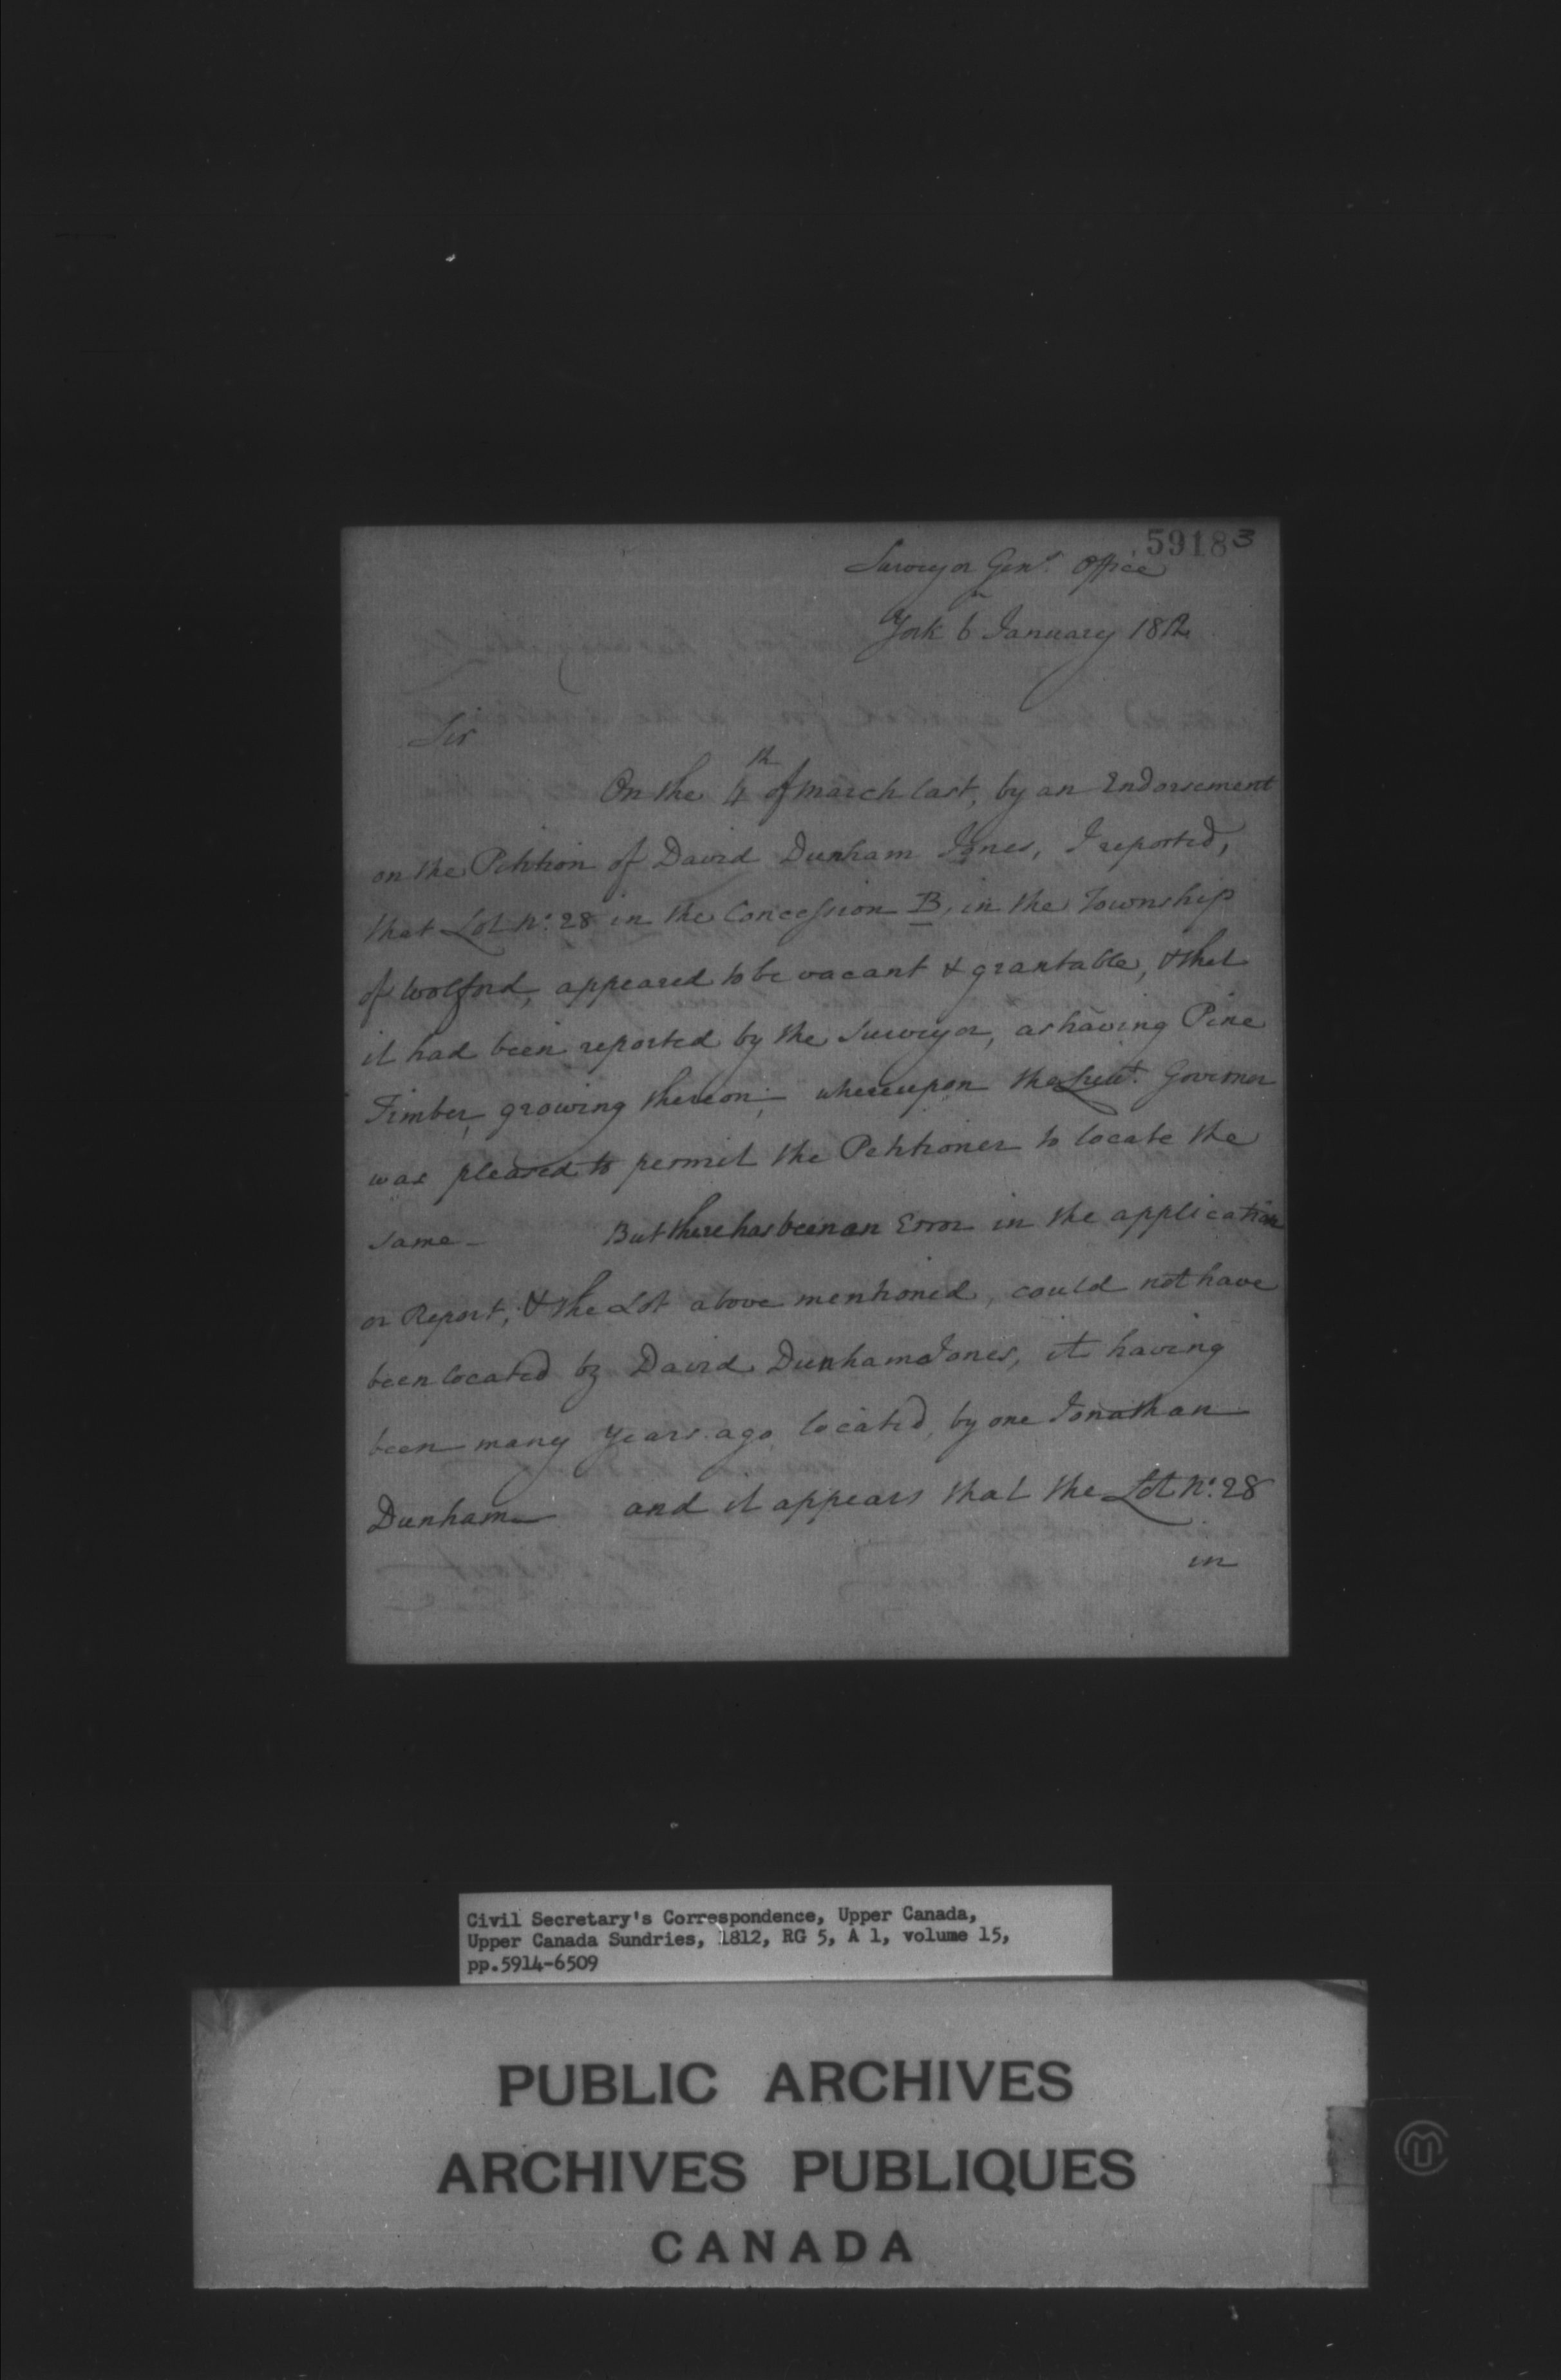 59183
Surveyor Genl. Office
York 6th January 1812
Sir
On the 4th of March last, by an Endorsement
on the Petition of David Dunham Jones, I reported,
that Lot No. 28 in the Concession B, in the Township
of Wolford, appeared to be vacant & grantable, & that
it had been reported by the Surveyor, as having Pine
Timber, growing thereon; whereupon the Lieut. Governor
was pleased to permit the Petitioner to locate the
same — But there has been an Error in the application
or Report, & the Lot above mentioned, could not have
been located by David Dunham Jones, it having
been many years ago located, by one Jonathan
Dunham — and it appears that the Lot No. 28
in
Civil Secretary's Correspondence, Upper Canada,
Upper Canada Sundries, 1812, RG 5, A 1, volume 15,
pp.5914-6509
PUBLIC ARCHIVES
ARCHIVES PUBLIQUES
CANADA